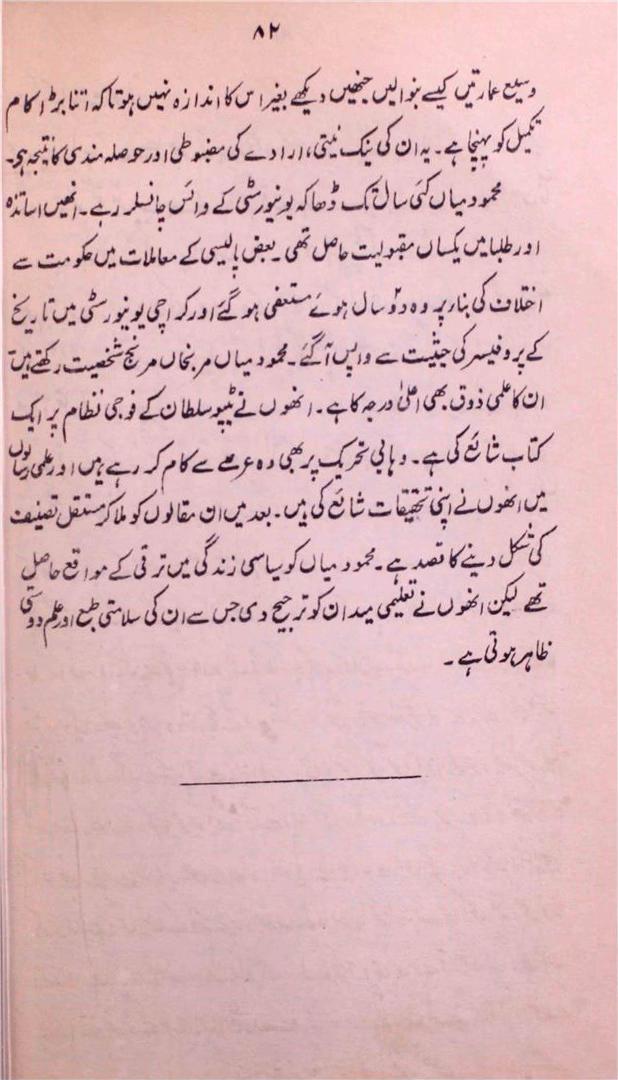 ۸۲
وسیع عمارتیں کیسے بنوالیں جنھیں دیکھے بغیر اس کا اندازہ نہیں ہوتا کہ اتنا بڑا کام
تکمیل کو پہنچا ہے۔ یہ ان کی نیک نیتی، ارادے کی مضبوطی اور حوصلہ مندی کا نتیجہ ہے۔
محمود میاں کئی سال تک ڈھاکہ یونیورسٹی کے وائس چانسلر رہے۔ انھیں اساتذہ
اور طلبا میں یکساں مقبولیت حاصل تھی۔ بعض پالیسی کے معاملات میں حکومت سے
اختلاف کی بنا پر وہ دو سال ہوئے مستعفی ہو گئے اور کراچی یونیورسٹی میں تاریخ
کے پروفیسر کی حیثیت سے واپس آگئے۔ محمود میاں مرنجاں مرنج شخصیت رکھتے ہیں
ان کا علمی ذوق بھی اعلیٰ درجہ کا ہے۔ انھوں نے ٹیپو سلطان کے فوجی نظام پر ایک
کتاب شائع کی ہے۔ وہابی تحریک پر بھی وہ عرصے سے کام کر رہے ہیں اور علمی رسالوں
میں انھوں نے اپنی تحقیقات شائع کی ہیں۔ بعد میں ان مقالوں کو ملا کر مستقل تصنیف
کی شکل دینے کا قصد ہے۔ محمود میاں کو سیاسی زندگی میں ترقی کے مواقع حاصل
تھے لیکن انھوں نے تعلیمی میدان کو ترجیح دی جس سے ان کی سلامتی طبع اور علم دوستی
ظاہر ہوتی ہے۔